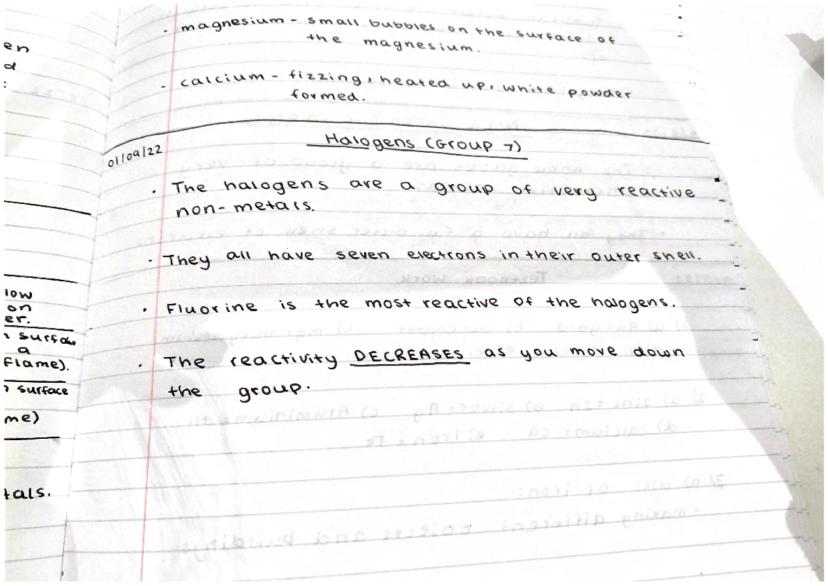 • magnesium - small bubbles on the surface of
the magnesium.
• calcium - fizzing, heated up, white powder
formed.
01/09/22
Halogens (Group 7)
• The halogens are a group of very reactive
non-metals.
• They all have seven electrons in their outer shell.
• Fluorine is the most reactive of the halogens.
• The reactivity DECREASES as you move down
the group.
low
on
er.
surface
a
flame).
surface
me)
tals.